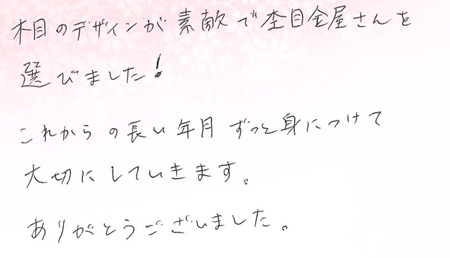 木目のデザインが素敵で杢目金屋さんを
選びました!
これからの長い年月ずっと身につけて
大切にしていきます。
ありがとうございました。